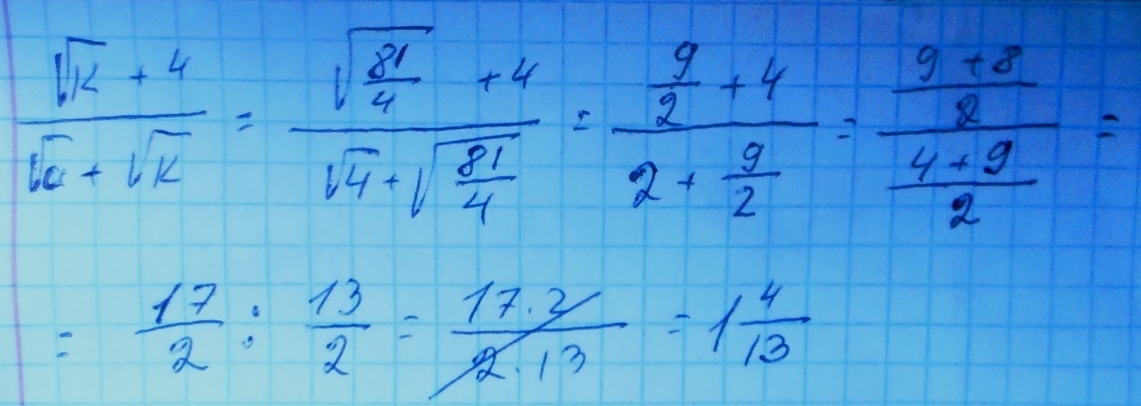 (√k + 4)/(√a + √k) = (√(81/4) + 4)/(√4 + √(81/4)) = (9/2 + 4)/(2 + 9/2) = ((9 + 8)/2)/((4 + 9)/2) =
= 17/2 : 13/2 = (17 · 2)/(2 · 13) = 1 4/13